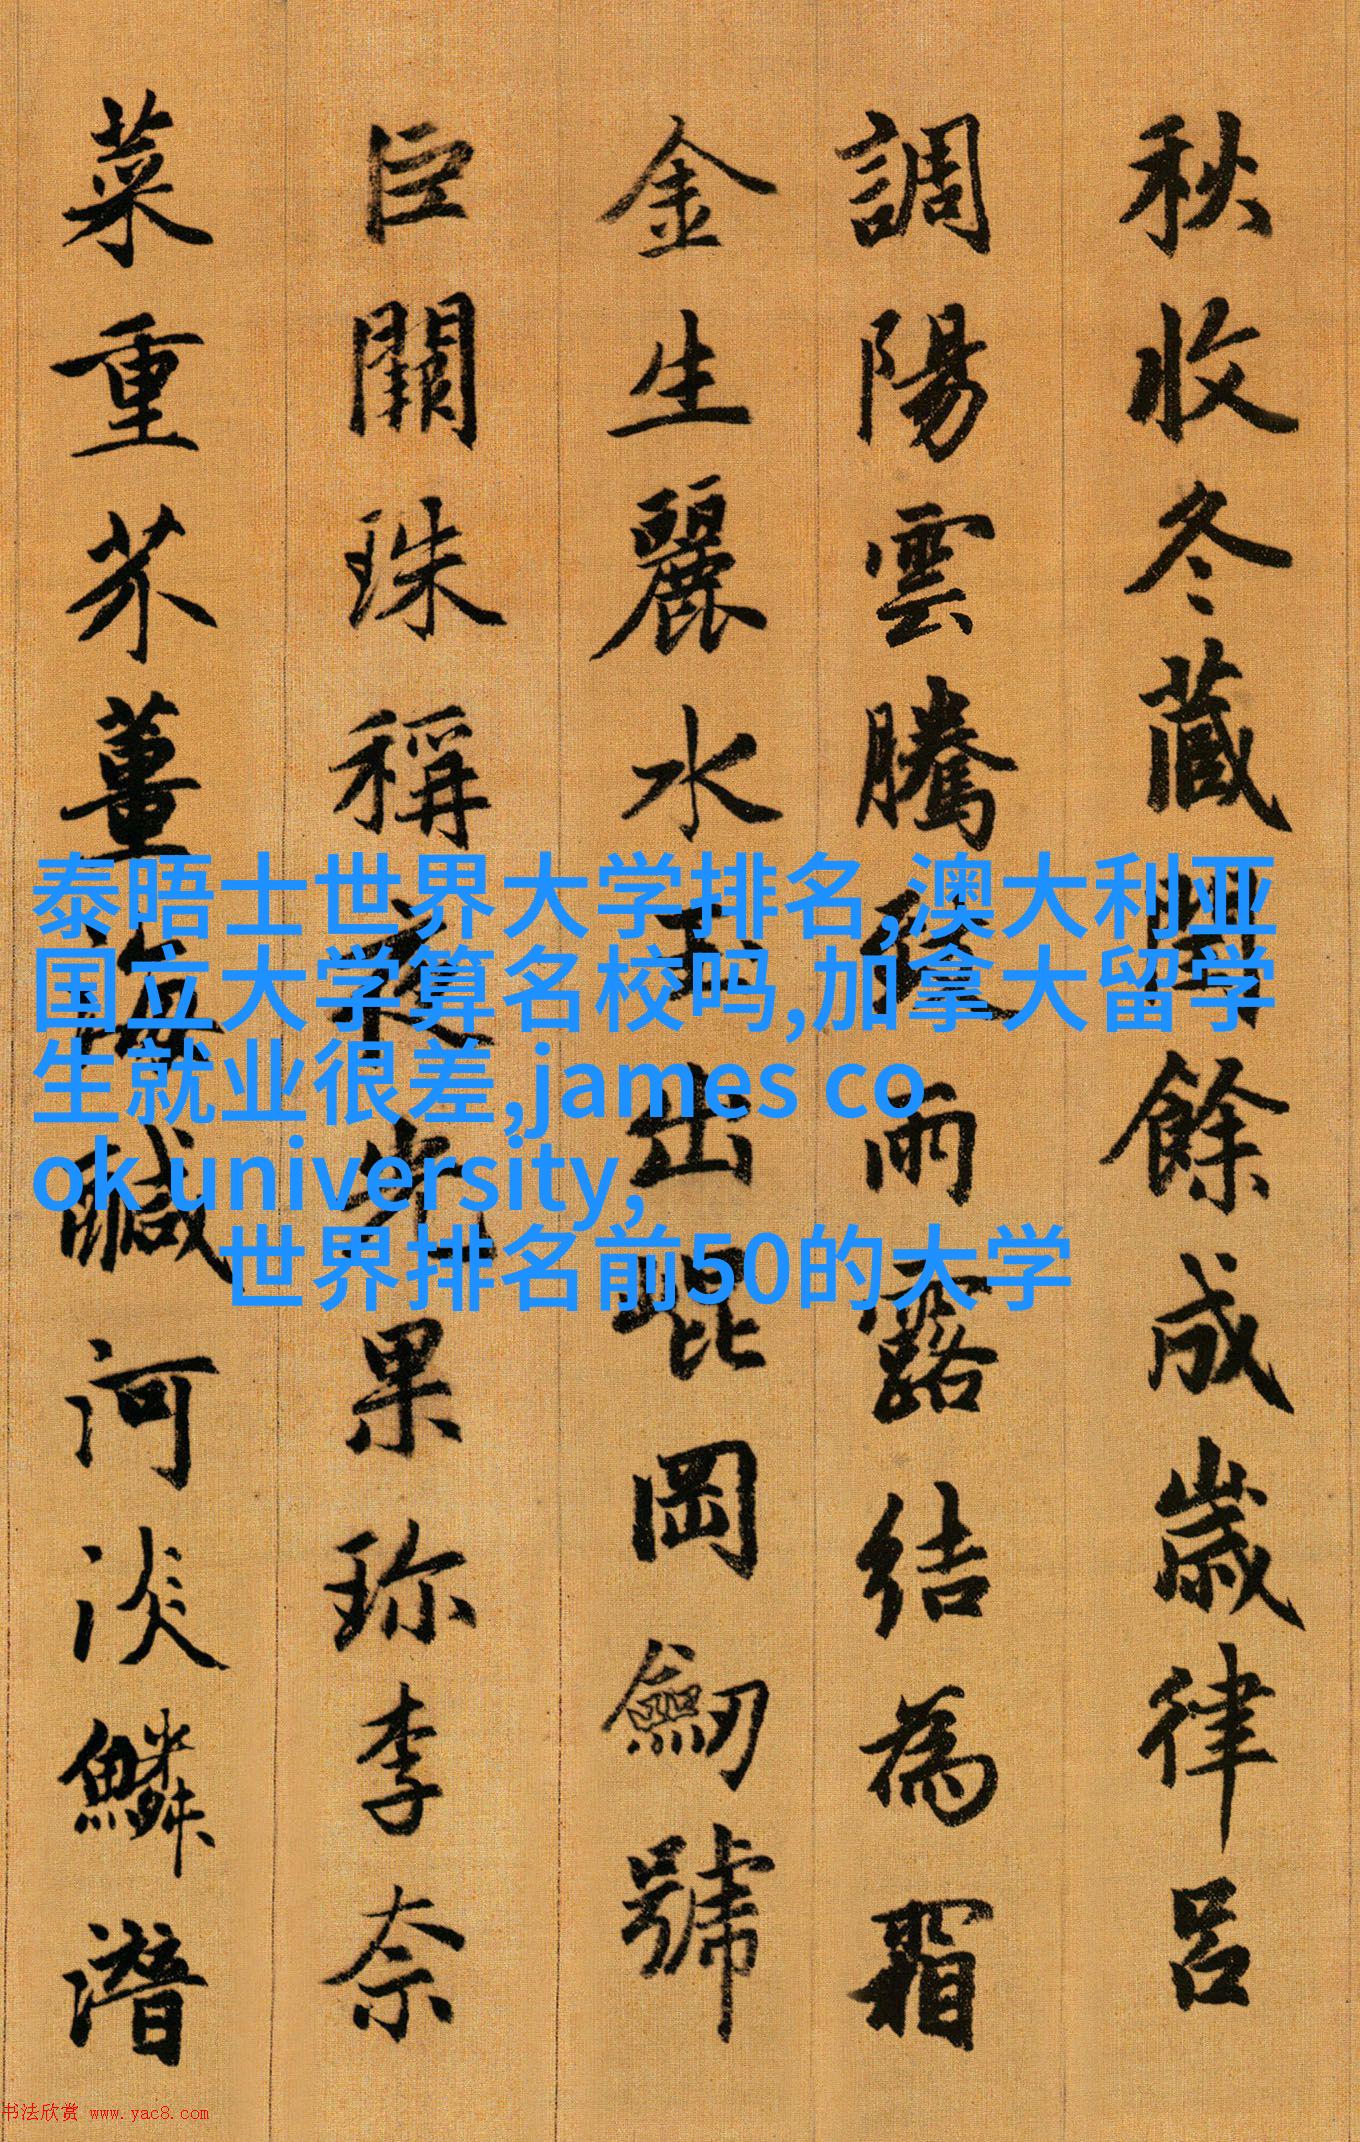 秋收冬藏閏餘成歲律呂
調陽雲騰致雨露結為霜
金生麗水玉出崑岡劒號
巨闕珠稱夜光果珎李奈
菜重芥薑海鹹河淡鱗潛
泰晤士世界大学排名,澳大利亚
国立大学算名校吗,加拿大留学
生就业很差,james co
ok university,
世界排名前50的大学
书法欣赏 www.yac8.com